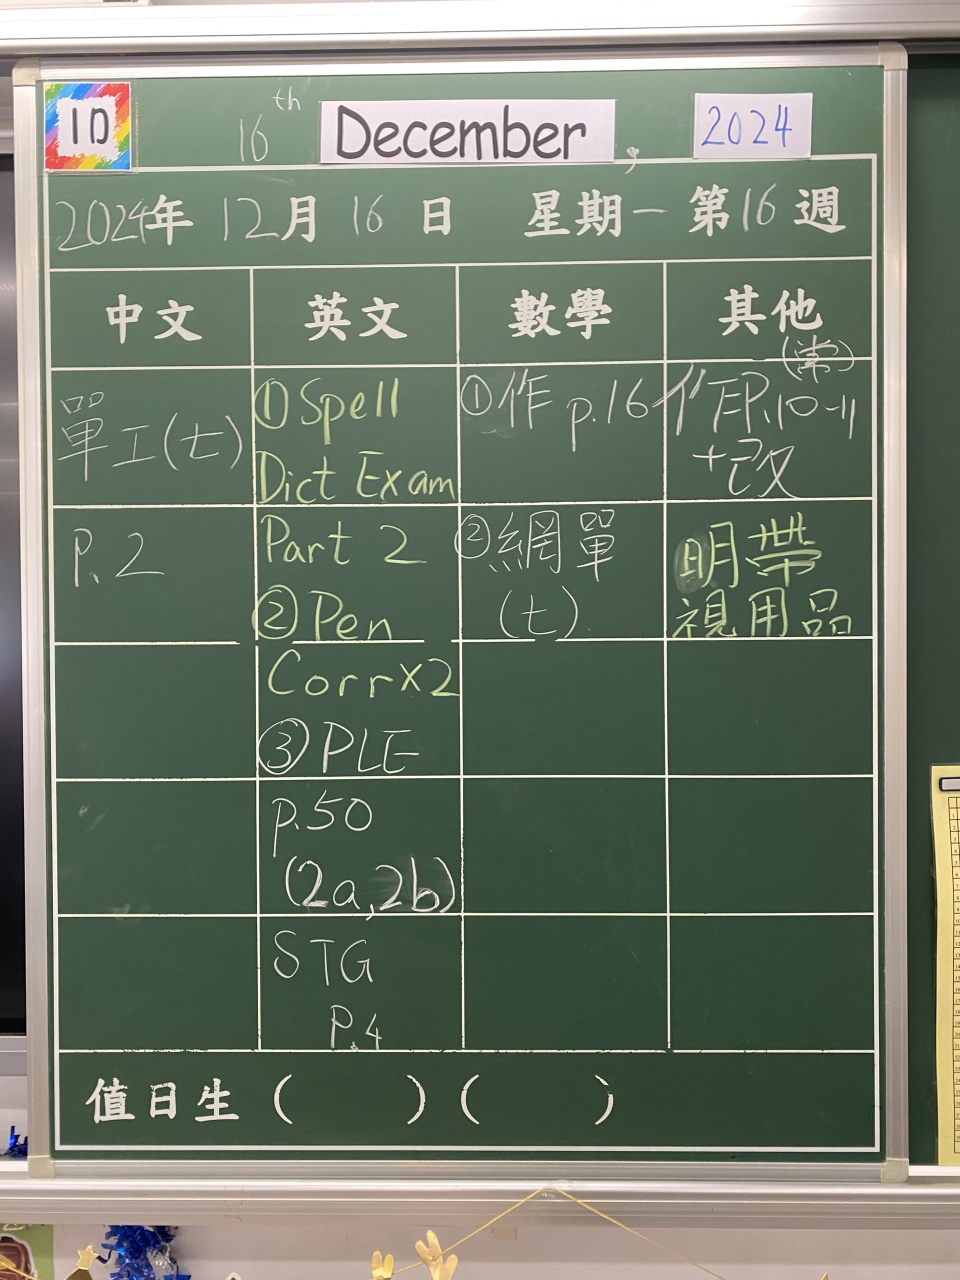 1D
16th December, 2024
2024年 12月 16日 星期一 第16週
中文 英文 數學 其他
單工(七)
P.2
①Spell
Dict Exam
Part 2
②Pen
Corr×2
③PLE
p.50
(2a,2b)
STG
P.4
①作 p.16
②網單
(七)
(常)
作P.10-11
+改
明帶
視用品
值日生 ( ) ( )